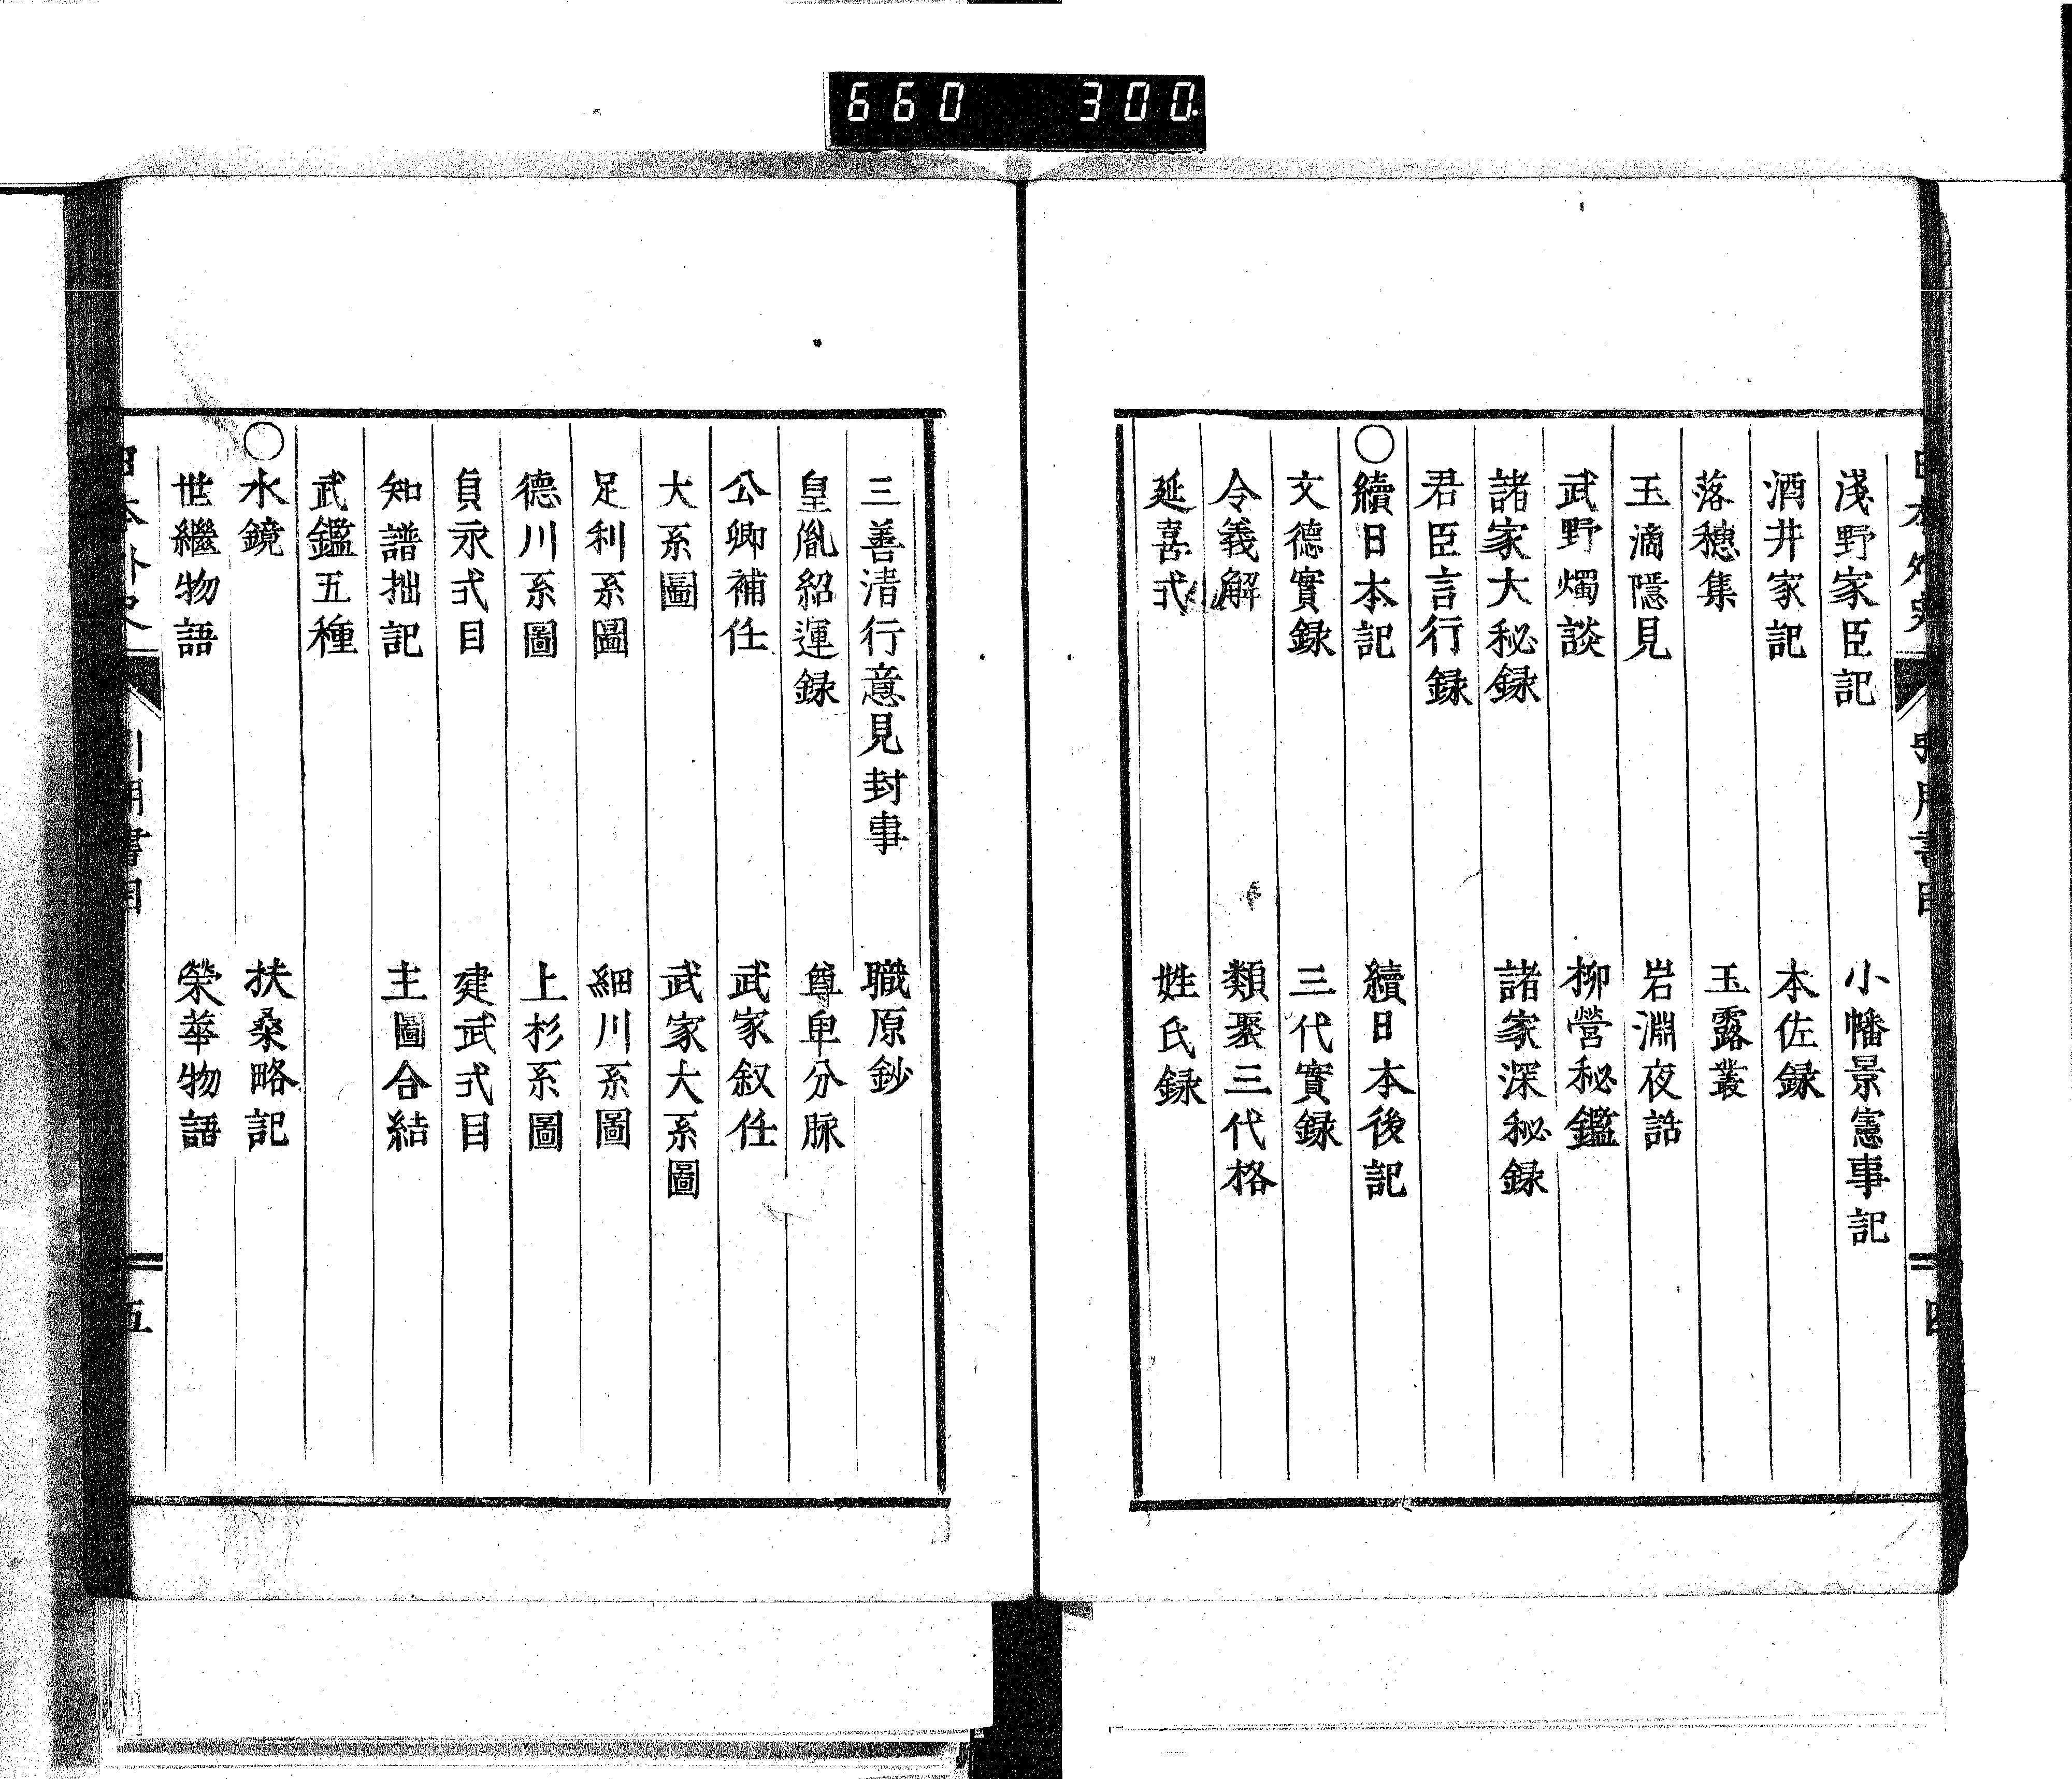 660 300
日本外史 引用書目 四
淺野家臣記 小幡景憲事記
酒井家記 本佐録
落穗集 玉露叢
玉滴隱見 岩淵夜話
武野燭談 柳營秘鑑
諸家大秘録 諸家深秘録
君臣言行録
○續日本記 續日本後記
文德實録 三代實録
令義解 類聚三代格
延喜式 姓氏録
三善清行意見封事 職原鈔
皇胤紹運録 尊卑分脈
公卿補任 武家叙任
大系圖 武家大系圖
足利系圖 細川系圖
德川系圖 上杉系圖
貞永式目 建武式目
知譜拙記 主圖合結
武鑑五種
○水鏡 扶桑略記
世繼物語 榮華物語
日本外史 引用書目 五